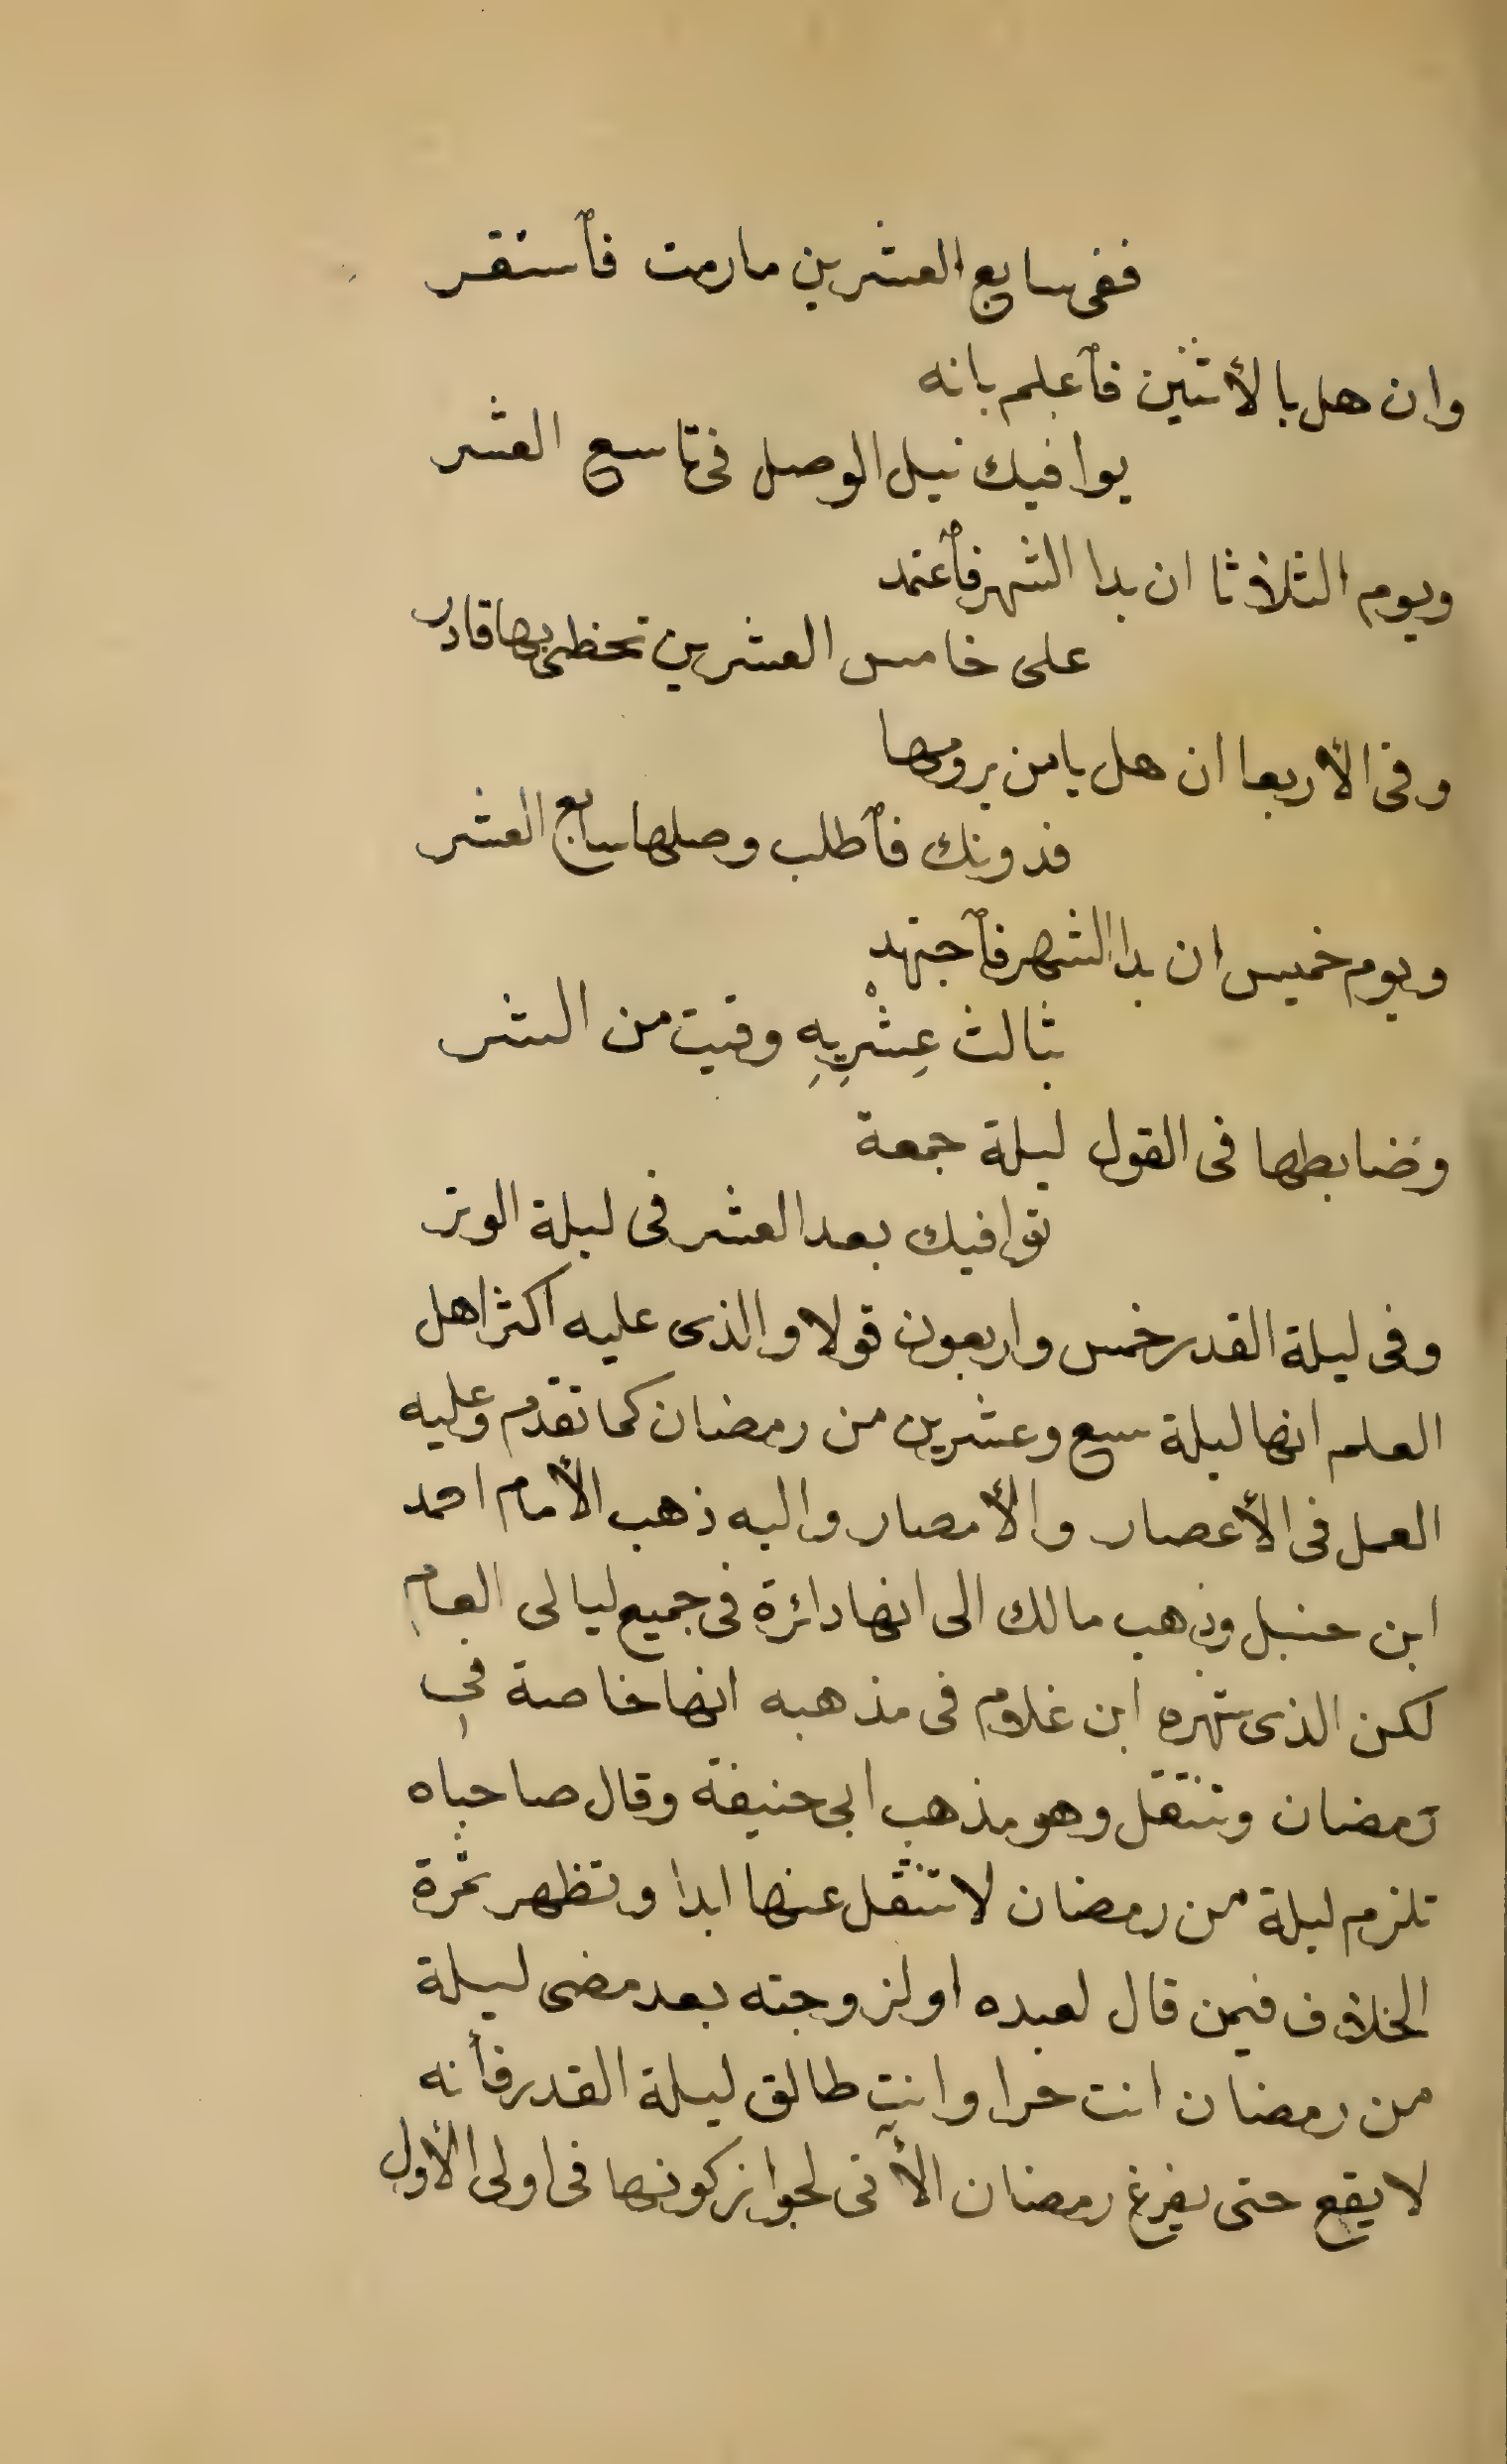 ففى سابع العشرين مارمت فٱستقر
وان هل بالأثنين فٱعلم بانه
يوافيك نيل الوصل فى تاسع العشر
ويوم الثلاثا ان بدا الشهر فٱعتمد
على خامس العشرين تحظى بها قادر
وفى الأربعا ان هل يامن يرومها
فدونك فٱطلب وصلها سابع العشر
ويوم خميس ان بدا الشهر فٱجتهد
بثالث عِشْرِيهِ وقيت من الشر
وضابطها فى القول ليلة جمعة
توافيك بعد العشر فى ليلة الوتر
وفى ليلة القدر خمس واربعون قولا والذى عليه اكثر اهل
العلم انها ليلة سبع وعشرين من رمضان كما تقدم وعليه
العمل فى الأعصار والأمصار واليه ذهب الأمام احمد
ابن حنبل وذهب مالك الى انها دائرة فى جميع ليالى العامِ
لكن الذى شهره ابن غلام فى مذهبه انها خاصة فى
رمضان وتنتقل وهو مذهب ابى حنيفة وقال صاحباه
تلزم ليلة من رمضان لا تنتقل عنها ابدا وتظهر ثمرة
الخلاف فيمن قال لعبده او لزوجته بعد مضى ليلة
من رمضان انت حرا وانتِ طالق ليلة القدر فأنه
لا يقع حتى يفرغ رمضان الأتى لجواز كونها فى اولى الأول